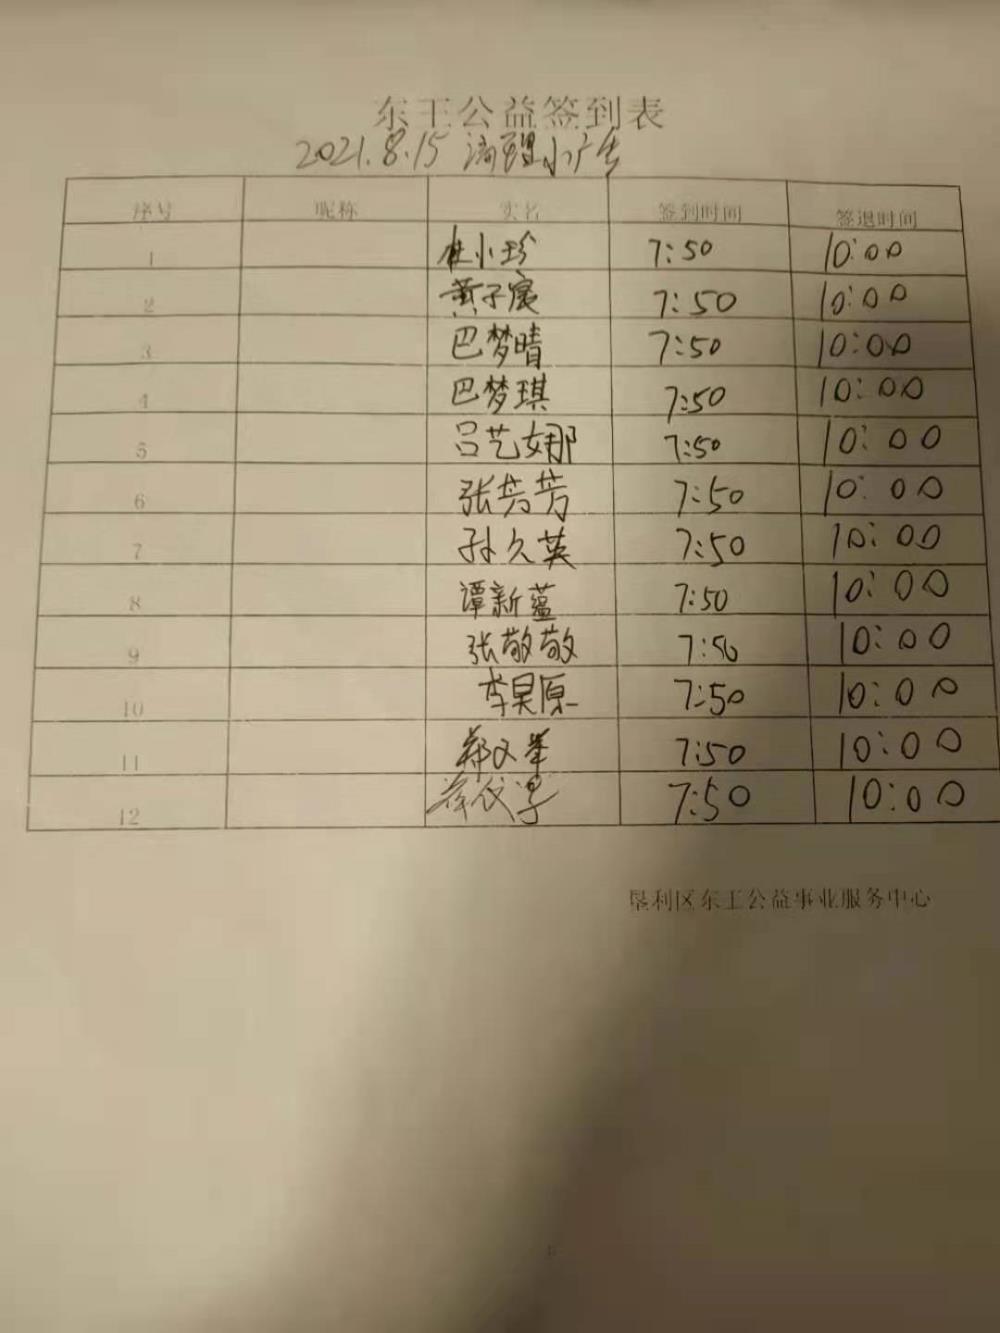 东王公益签到表
2021.8.15 清理小广告
序号 昵称 实名 签到时间 签退时间
1 杜小珍 7:50 10:00
2 黄子宸 7:50 10:00
3 巴梦晴 7:50 10:00
4 巴梦琪 7:50 10:00
5 吕艺娜 7:50 10:00
6 张芳芳 7:50 10:00
7 孙久英 7:50 10:00
8 谭新蕴 7:50 10:00
9 张敬敬 7:50 10:00
10 李昊原 7:50 10:00
11 郑文举 7:50 10:00
12 7:50 10:00
垦利区东王公益事业服务中心